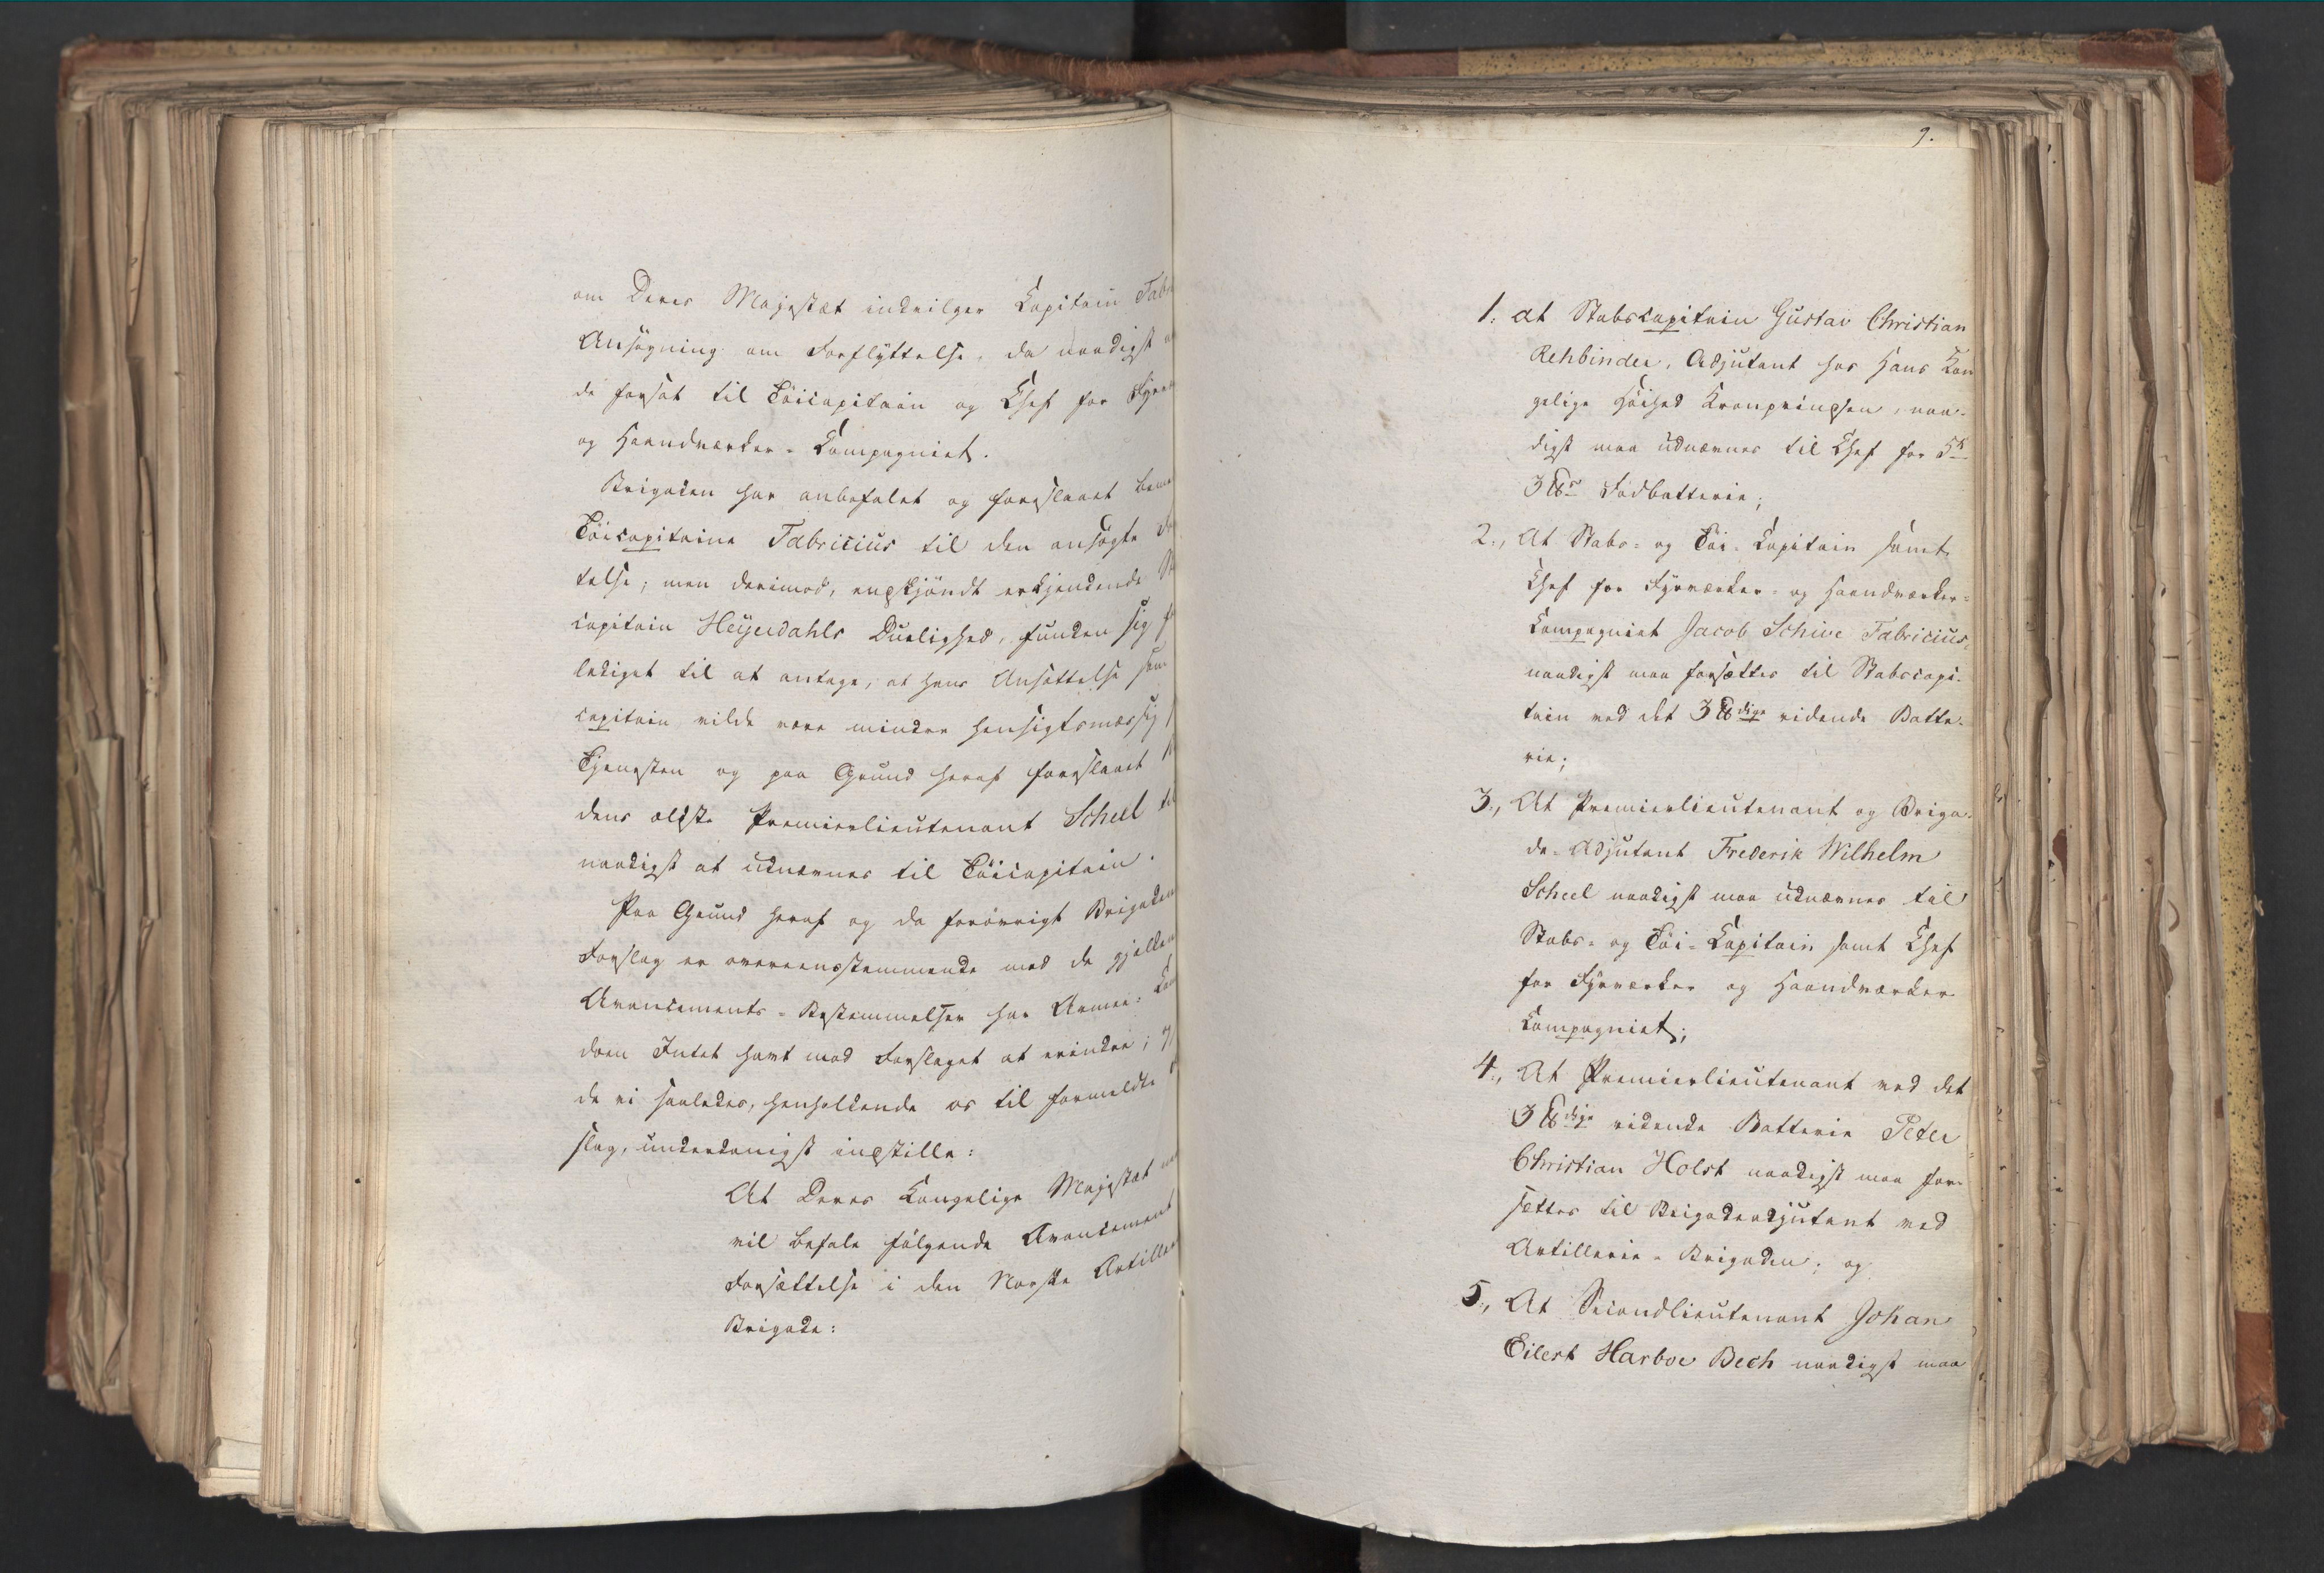 om Deres Majestæt indvilger Capitain Fabr
Ansøgning om Forflyttelse, da naadigst
de forsat til Töicapitain og Chef for Fyrv
og Haandværker-Compagniet.
Brigaden har anbefalet og foreslaaet bem
Töicapitaine Fabricius til den ansøgte
telse; men derimod, enskjöndt erkjendende
capitain Heyerdahls Duelighed, funden sig
lediget til at antage, at hans Ansættelse som
capitain vilde være mindre hensigtsmæssig
Tjenesten og paa Grund heraf foreslaaet
dens ældste Premierlieutenant Scheel til
naadigst at udnævnes til Töicapitain.
Paa Grund heraf og da forövrigt Brigaden
Forslag er overeensstemmende med de gjælden
Avancements-Bestemmelser har Armee-Com
doen Intet havt mod Forslaget at erindre;
de vi saaledes, henholdende os til formeldte
slag, underdanigst indstille:
At Deres Kongelige Majestæt
vil befale følgende Avancement
Forsættelse i den Norske Artilleri
Brigade:
9.
1. at Stabscapitain Gustav Christian
Rehbinder, Adjutant hos Hans Kon
gelige Höihed Kronprindsen, naa-
digst maa udnævnes til Chef for 5te
3 ℔rs Fodbatterie;
2., At Stabs- og Töi-Capitain samt
Chef for Fyrværker- og Haandværker-
Compagniet Jacob Schive Fabricius,
naadigst maa forsættes til Stabscapi-
tain ved det 3 ℔dige ridende Batte-
rie;
3., At Premierlieutenant og Briga-
de-Adjutant Frederik Wilhelm
Scheel naadigst maa udnævnes til
Stabs- og Töi-Capitain samt Chef
for Fyrværker og Haandværker
Compagniet;
4., At Premierlieutenant ved det
3 ℔dige ridende Batterie Peter
Christian Holst naadigst maa for-
sættes til Brigadeadjutant ved
Artillerie-Brigaden; og
5., At Secondlieutenant Johan
Eilert Harboe Bech naadigst maa